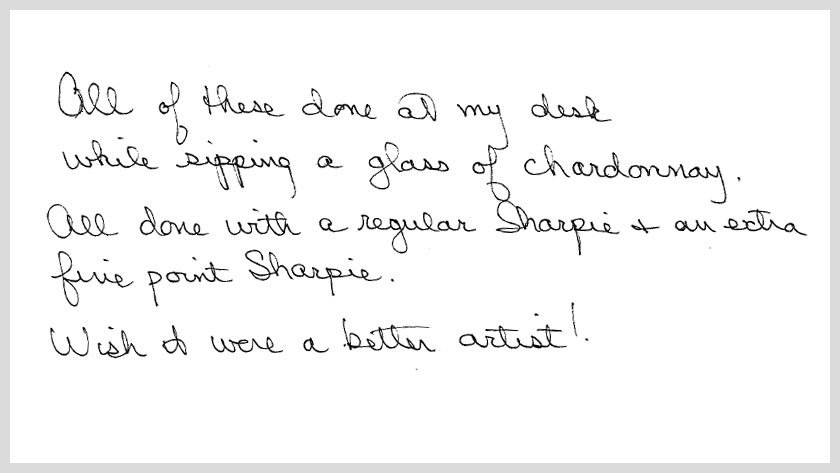 All of these done at my desk
while sipping a glass of chardonnay.
All done with a regular Sharpie & an extra
fine point Sharpie.
Wish I were a better artist!